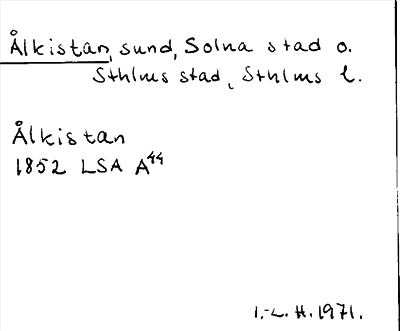 Ålkistan, sund, Solna stad o.
Sthlms stad, Sthlms l.
Ålkistan
1852 LSA A44
I.-L. H. 1971.